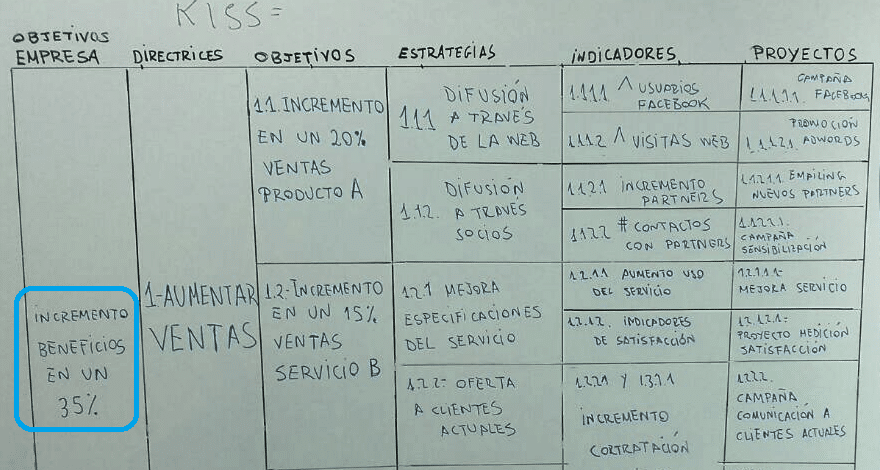 KISS=
OBJETIVOS
EMPRESA
DIRECTRICES
OBJETIVOS
ESTRATEGIAS
INDICADORES
PROYECTOS
INCREMENTO
BENEFICIOS
EN UN
35%
1-AUMENTAR
VENTAS
1.1. INCREMENTO
EN UN 20%
VENTAS
PRODUCTO A
1.1.1 DIFUSIÓN
A TRAVÉS
DE LA WEB
1.1.1.1 ^ USUARIOS
FACEBOOK
1.1.1.1.1. CAMPAÑA
FACEBOOK
1.1.1.2 ^ VISITAS WEB
PROMOCIÓN
1.1.1.2.1. ADWORDS
1.1.2. DIFUSIÓN
A TRAVÉS
SOCIOS
1.1.2.1 INCREMENTO
PARTNERS
1.1.2.1.1. EMAILING
NUEVOS PARTNERS
1.1.2.2 # CONTACTOS
CON PARTNERS
1.1.2.2.1.
CAMPAÑA
SENSIBILIZACIÓN
1.2.-INCREMENTO
EN UN 15%
VENTAS
SERVICIO B
1.2.1 MEJORA
ESPECIFICACIONES
DEL SERVICIO
1.2.1.1 AUMENTO USO
DEL SERVICIO
1.2.1.1.1-
MEJORA SERVICIO
1.2.1.2. INDICADORES
DE SATISFACCIÓN
1.2.1.2.1-
PROYECTO MEDICIÓN
SATISFACCIÓN
1.2.2- OFERTA
A CLIENTES
ACTUALES
1.2.2.1 Y 1.3.2.1
INCREMENTO
CONTRATACIÓN
1.2.2.2.
CAMPAÑA
COMUNICACIÓN A
CLIENTES ACTUALES